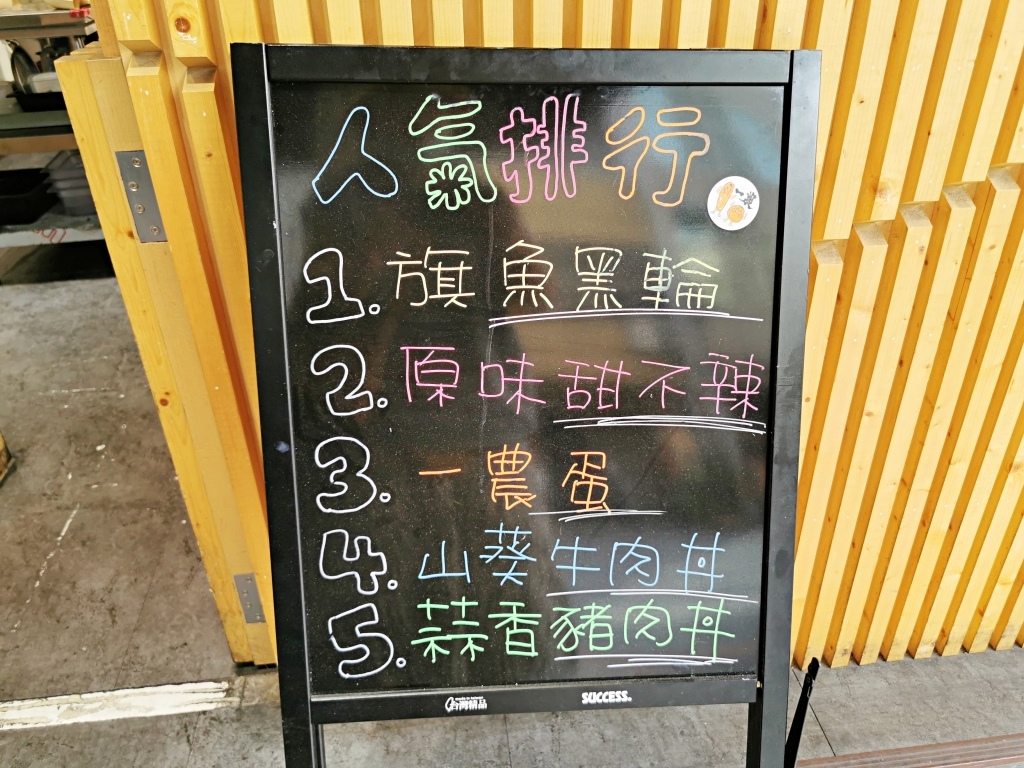 人氣排行
1. 旗魚黑輪
2. 原味甜不辣
3. 一農蛋
4. 山葵牛肉丼
5. 蒜香豬肉丼
台灣精品 SUCCESS